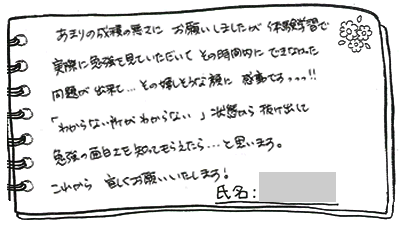 あまりの成績の悪さに お願いしましたが 体験学習で
実際に勉強を見ていただいて その時間内に できなかった
問題が 出来て…その嬉しそうな顔に 感動です...!!
「わからない所がわからない」状態から 抜け出して
勉強の面白さを 知ってもらえたら…と思います。
これから 宜しくお願いいたします!
氏名: